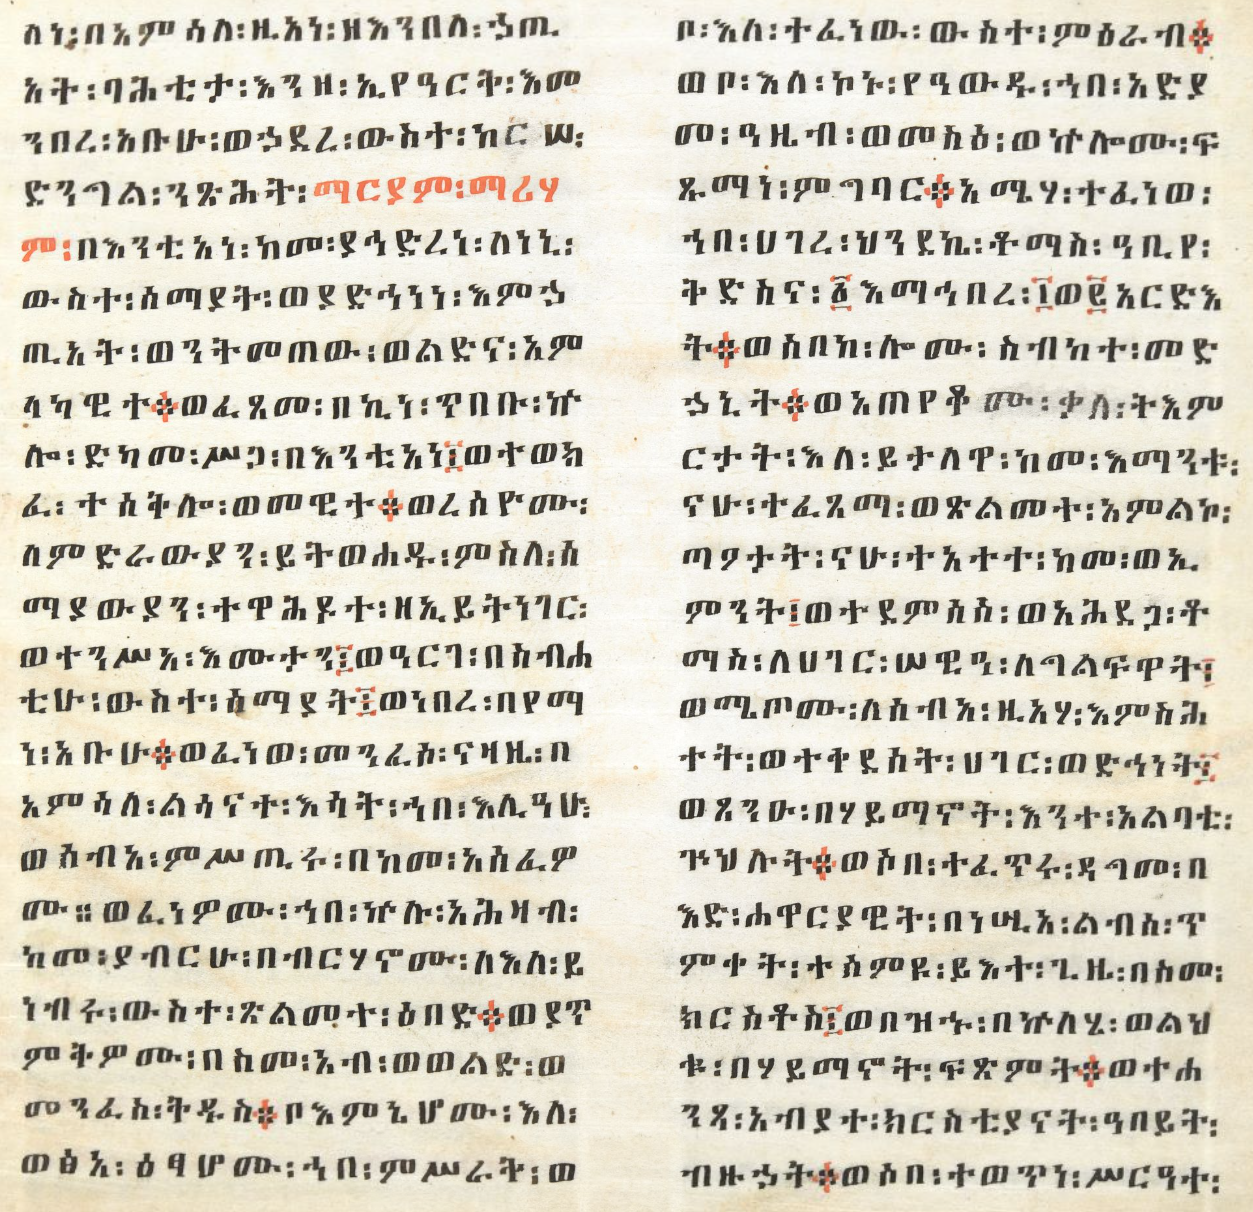 ስነ፡በአምሳለ፡ዚአነ፡ዘእንበለ፡ኃጢ
አት፡ባሕቲታ፡እንዘ፡ኢየዓርት፡እመ
ንበረ፡አቡሁ፡ወኃደረ፡ውስተ፡ከርሠ፡
ድንግል፡ንጽሕት፡ማርያም፡ማሪሃ
ም፡በእንቲአነ፡ከመ፡ያኅድረነ፡ለነኒ፡
ውስተ፡ሰማያት፡ወያድኅነነ፡እምኃ
ጢአት፡ወንትመጠው፡ወልድና፡አም
ላካዊተ፨ወፈጸመ፡በኪነ፡ጥበቡ፡ኵ
ሎ፡ድካመ፡ሥጋ፡በእንቲአነ፤ወተወክ
ፈ፡ተሰቅሎ፡ወመዊተ፨ወረሰዮሙ፡
ለምድራውያን፡ይትወሐዱ፡ምስለ፡ሰ
ማያውያን፡ተዋሕዶተ፡ዘኢይትነገር፡
ወተንሥአ፡እሙታን፤ወዓርገ፡በስብሐ
ቲሁ፡ውስተ፡ሰማያት፤ወነበረ፡በየማ
ነ፡አቡሁ፨ወፈነወ፡መንፈሰ፡ናዛዚ፡በ
አምሳለ፡ልሳናተ፡እሳት፡ኀበ፡እሊዓሁ፡
ወሰብአ፡ምሥጢሩ፡በከመ፡አሰፈዎ
ሙ።ወፈነዎሙ፡ኀበ፡ኵሉ፡አሕዛብ፡
ከመ፡ያብርሁ፡በብርሃኖሙ፡ለእለ፡ይ
ነብሩ፡ውስተ፡ጽልመተ፡ዕበድ፨ወያጥ
ምትዎሙ፡በስመ፡አብ፡ወወልድ፡ወ
መንፈስ፡ቅዱስ፨ቦእምኒሆሙ፡እለ፡
ወፅአ፡ዕፃሆሙ፡ኀበ፡ምሥራት፡ወ
ቦ፡እለ፡ተፈነው፡ውስተ፡ምዕራብ፨
ወቦ፡እለ፡ኮኑ፡የዓውዱ፡ኀበ፡አድያ
መ፡ዓዜብ፡ወመስዕ፡ወኵሎሙ፡ፍ
ጹማነ፡ምግባር፨አሜሃ፡ተፈነወ፡
ኀበ፡ሀገረ፡ህንደኬ፡ቶማስ፡ዓቢየ፡
ትድስና፡፩እማኅበረ፡፲ወ፪አርድእ
ት፨ወሰበከ፡ሎሙ፡ስብከተ፡መድ
ኃኒት፨ወአጠየቆሙ፡ቃለ፡ትእም
ርታት፡እለ፡ይታለዋ፡ከመ፡እማንቱ፡
ናሁ፡ተፈጸማ፡ወጽልመተ፡አምልኮ፡
ጣዖታት፡ናሁ፡ተአተተ፡ከመ፡ወኢ
ምንት፤ወተደምሰሰ፡ወአሕደጋ፡ቶ
ማስ፡ለሀገር፡ሠዊዓ፡ለግልፍዋት፤
ወሚጦሙ፡ለሰብአ፡ዚአሃ፡እምስሕ
ተት፡ወተቀደሰት፡ሀገር፡ወድኅነት፤
ወጸንዑ፡በሃይማኖት፡እንተ፡አልባቲ፡
ኍህሉት፨ወሶበ፡ተፈጥሩ፡ዳግመ፡በ
እድ፡ሐዋርያዊት፡በነሢአ፡ልብሰ፡ጥ
ምቀት፡ተሰምዩ፡ይእተ፡ጊዜ፡በስመ፡
ክርስቶስ፤ወበዝኁ፡በኵለሄ፡ወልህ
ቁ፡በሃይማኖት፡ፍጽምት፨ወተሐ
ንጻ፡አብያተ፡ክርስቲያናት፡ዓበይት፡
ብዙኃት፨ወሶበ፡ተወጥነ፡ሥርዓተ፡